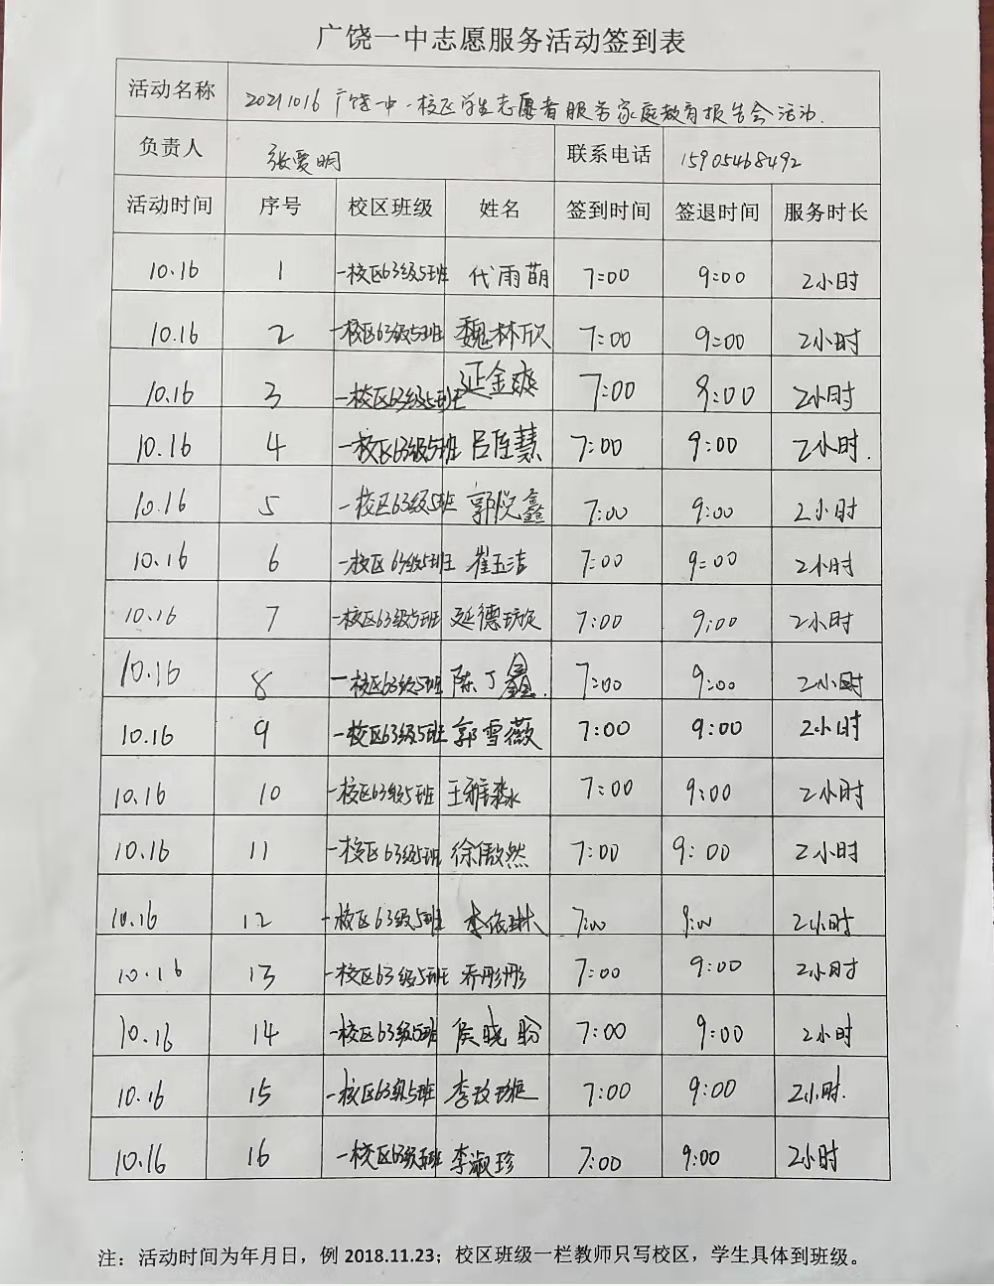 广饶一中志愿服务活动签到表
活动名称 20211016 广饶一中一校区学生志愿者服务家庭教育报告会活动.
负责人 张爱明 联系电话 15905468492
活动时间 序号 校区班级 姓名 签到时间 签退时间 服务时长
10.16 1 一校区63级5班 代雨萌 7:00 9:00 2小时
10.16 2 一校区63级5班 魏林欣 7:00 9:00 2小时
10.16 3 一校区63级5班 延金爽 7:00 9:00 2小时
10.16 4 一校区63级5班 吕慧 7:00 9:00 2小时.
10.16 5 一校区63级5班 郭悦鑫 7:00 9:00 2小时
10.16 6 一校区63级5班 崔玉洁 7:00 9:00 2小时
10.16 7 一校区63级5班 延德 7:00 9:00 2小时
10.16 8 一校区63级5班 陈丁鑫. 7:00 9:00 2小时
10.16 9 一校区63级5班 郭雪薇 7:00 9:00 2小时
10.16 10 一校区63级5班 王雅淼 7:00 9:00 2小时
10.16 11 一校区63级5班 徐傲然 7:00 9:00 2小时
10.16 12 一校区63级5班 李依琳 7:00 9:00 2小时
10.16 13 一校区63级5班 乔彤彤 7:00 9:00 2小时
10.16 14 一校区63级5班 侯晓盼 7:00 9:00 2小时
10.16 15 一校区63级5班 李玫璇 7:00 9:00 2小时.
10.16 16 一校区63级5班 李淑珍 7:00 9:00 2小时
注：活动时间为年月日，例 2018.11.23；校区班级一栏教师只写校区，学生具体到班级。